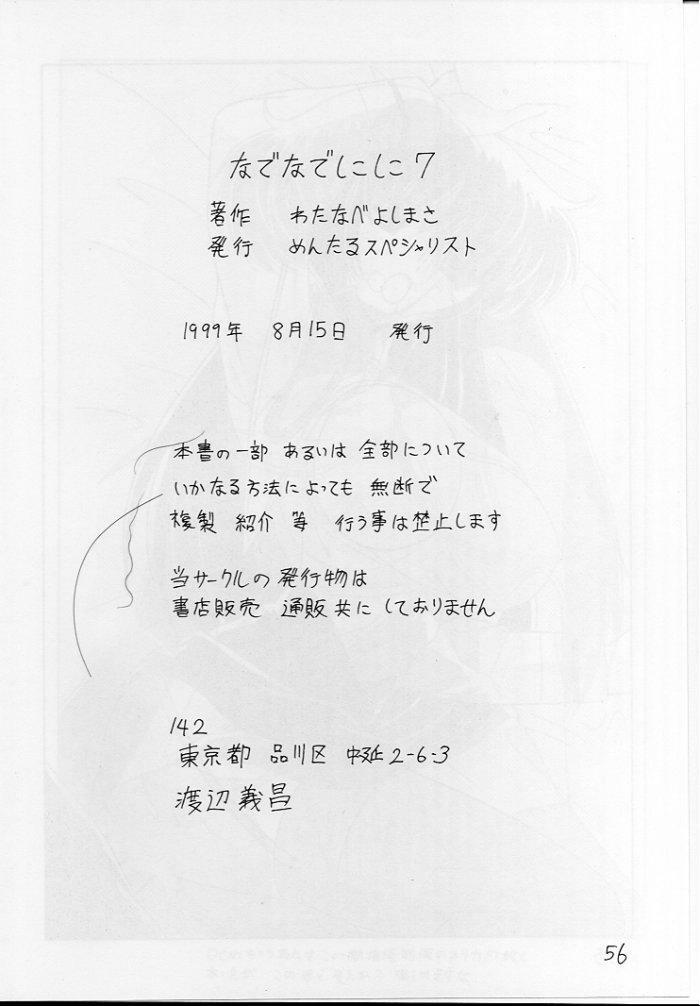 なでなでしこしこ 7
著作 わたなべよしまさ
発行 めんたるスペシャリスト
1999年 8月15日 発行
本書の一部 あるいは 全部について
いかなる方法によっても 無断で
複製 紹介 等 行う事は禁止します
当サークルの発行物は
書店販売 通販共にしておりません
142
東京都 品川区 中延2-6-3
渡辺義昌
56